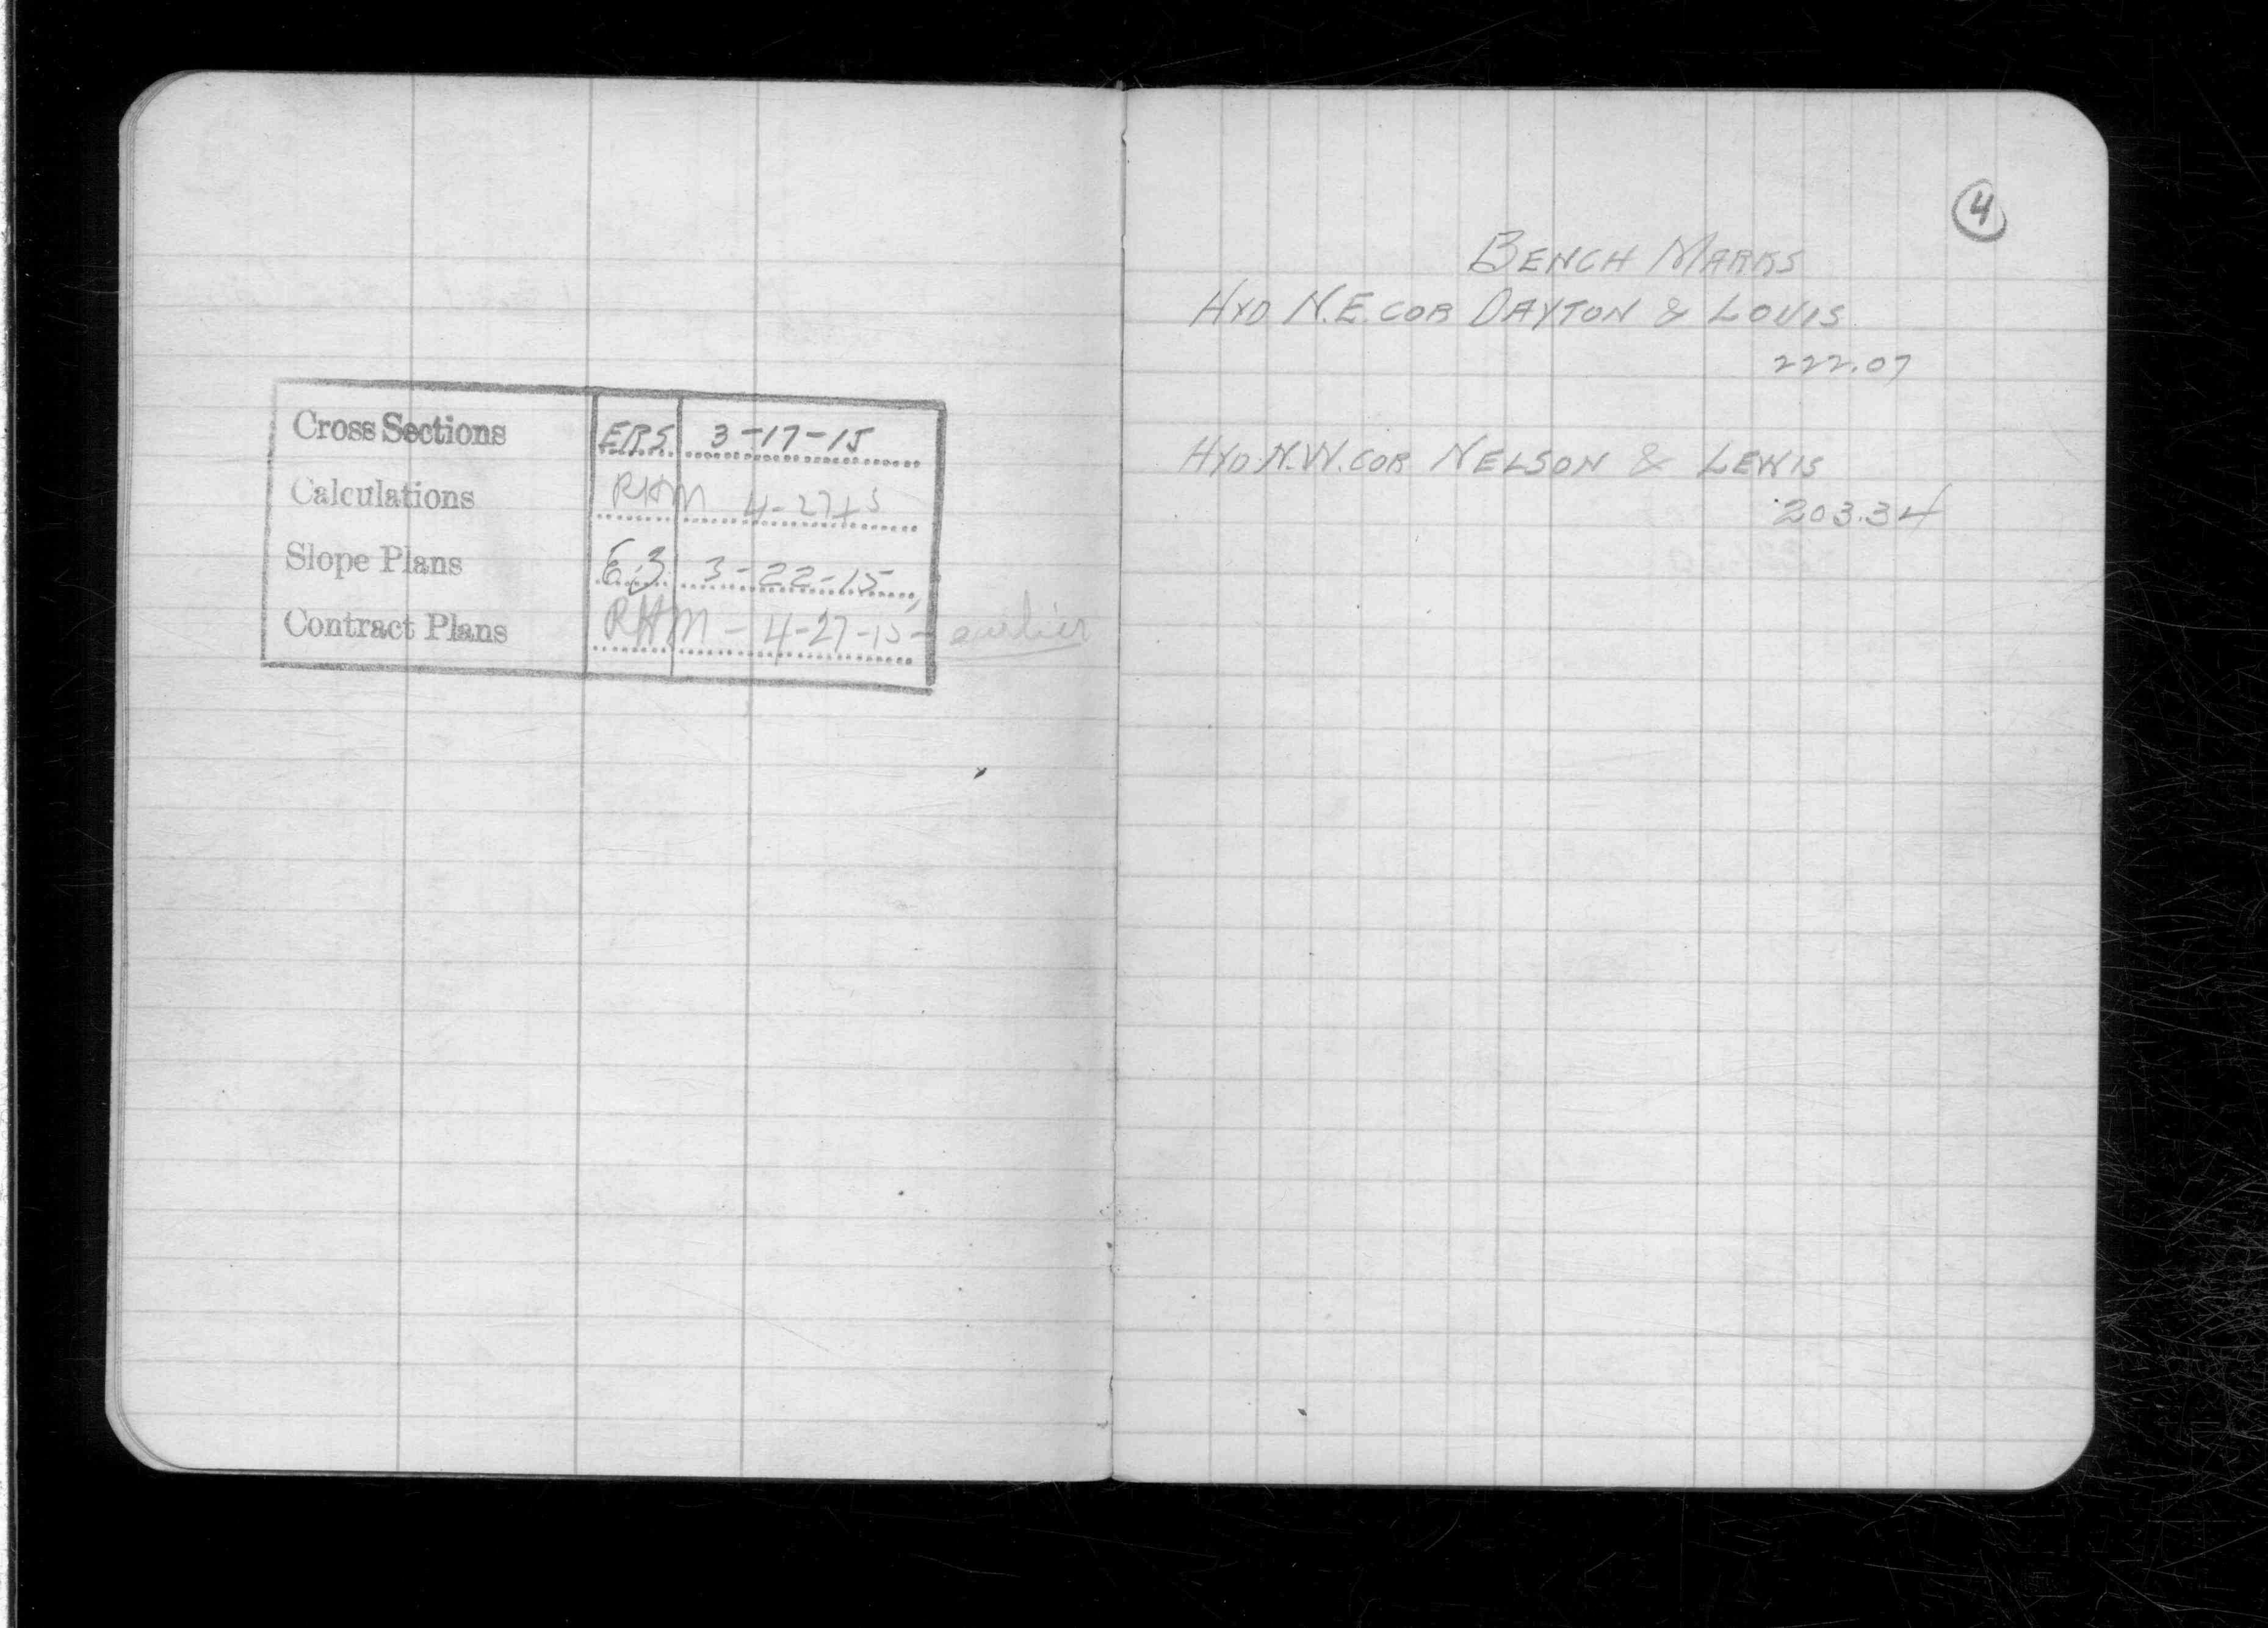 Cross Sections ERS 3-17-15
Calculations RHM 4-27-15
Slope Plans 3-22-15
Contract Plans RHM - 4-27-15 - earlier
4
BENCH MARKS
HYD N.E. COR DAYTON & LOUIS
222.07
HYD. N.W. COR NELSON & LEWIS
203.34